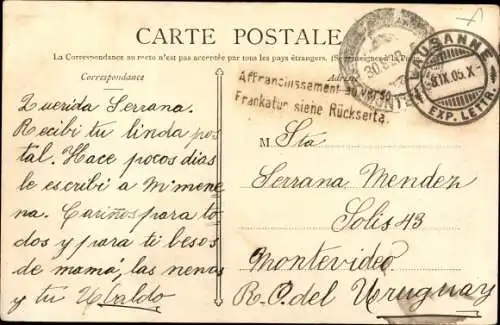 CARTE POSTALE
La Correspondance au recto n'est pas acceptée par tous les pays étrangers. (Se renseigner à la Poste)
Correspondance
Adresse
Affranchissement au verso.
Frankatur siehe Rückseite.
LAUSANNE
IX.05.X
EXP. LETTR.
Querida Serrana.
Recibi tu linda pos
tal. Hace pocos dias
le escribi a Mme
na. Cariños para to
dos y para ti besos
de mamá, las nenas
y tu Ubaldo
M Sta
Serrana Mendez
Solis 43
Montevideo
R. O. del Uruguay